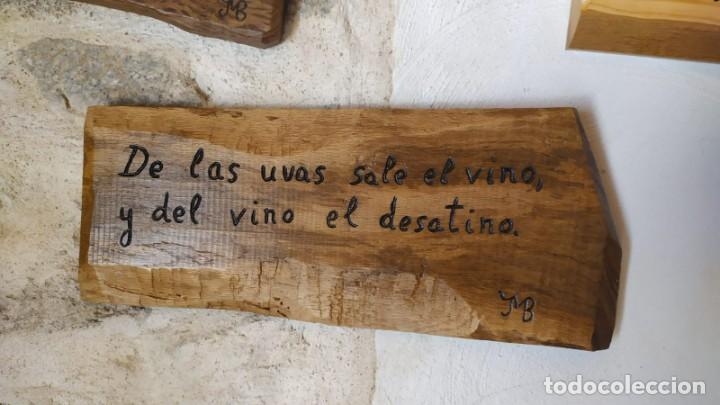 De las uvas sale el vino,
y del vino el desatino.
MB
MB
todocoleccion